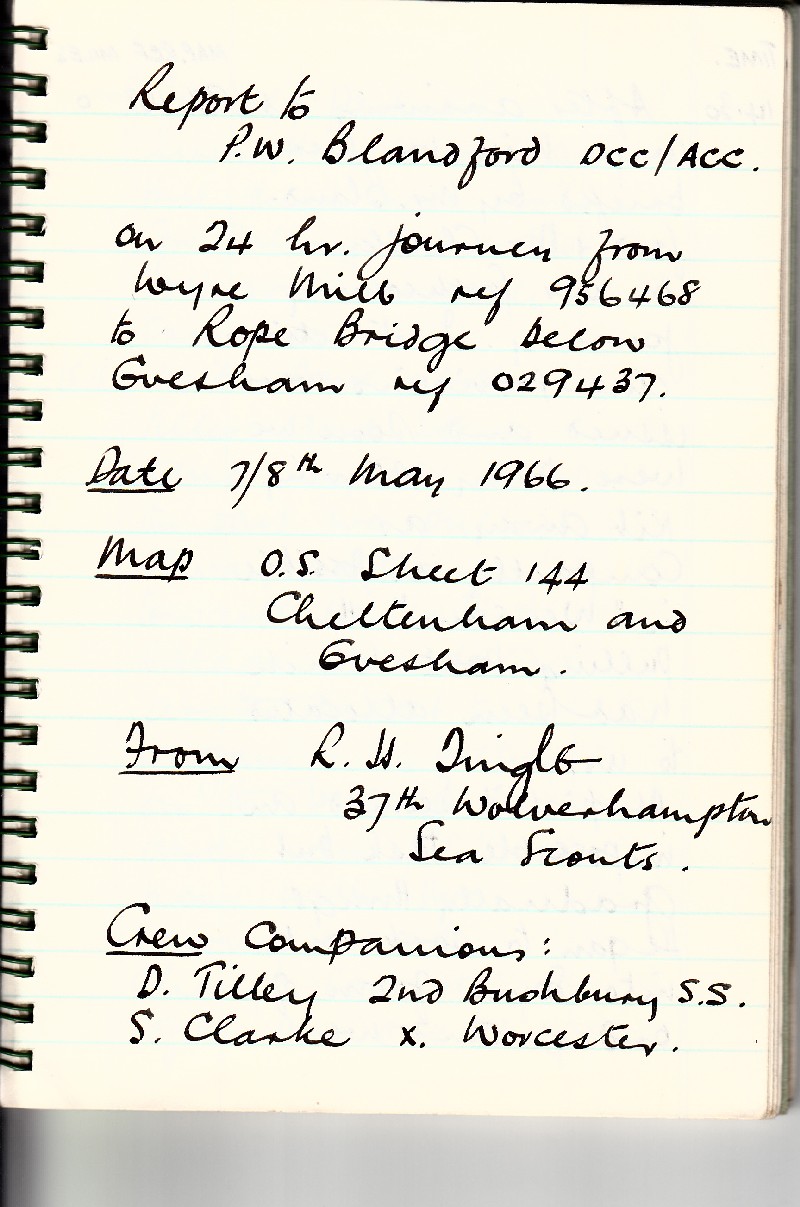 Report to
P.W. Blandford DCC/ACC.
on 24 hr. journey from
Wyre Mill ref 956468
to Rope Bridge below
Evesham ref 029437.
Date 7/8th May 1966.
Map O.S. Sheet 144
Cheltenham and
Evesham.
From R. H. Tingle
37th Wolverhampton
Sea Scouts.
Crew Companions:
D. Tilley 2nd Bushbury S.S.
S. Clarke x. Worcester.